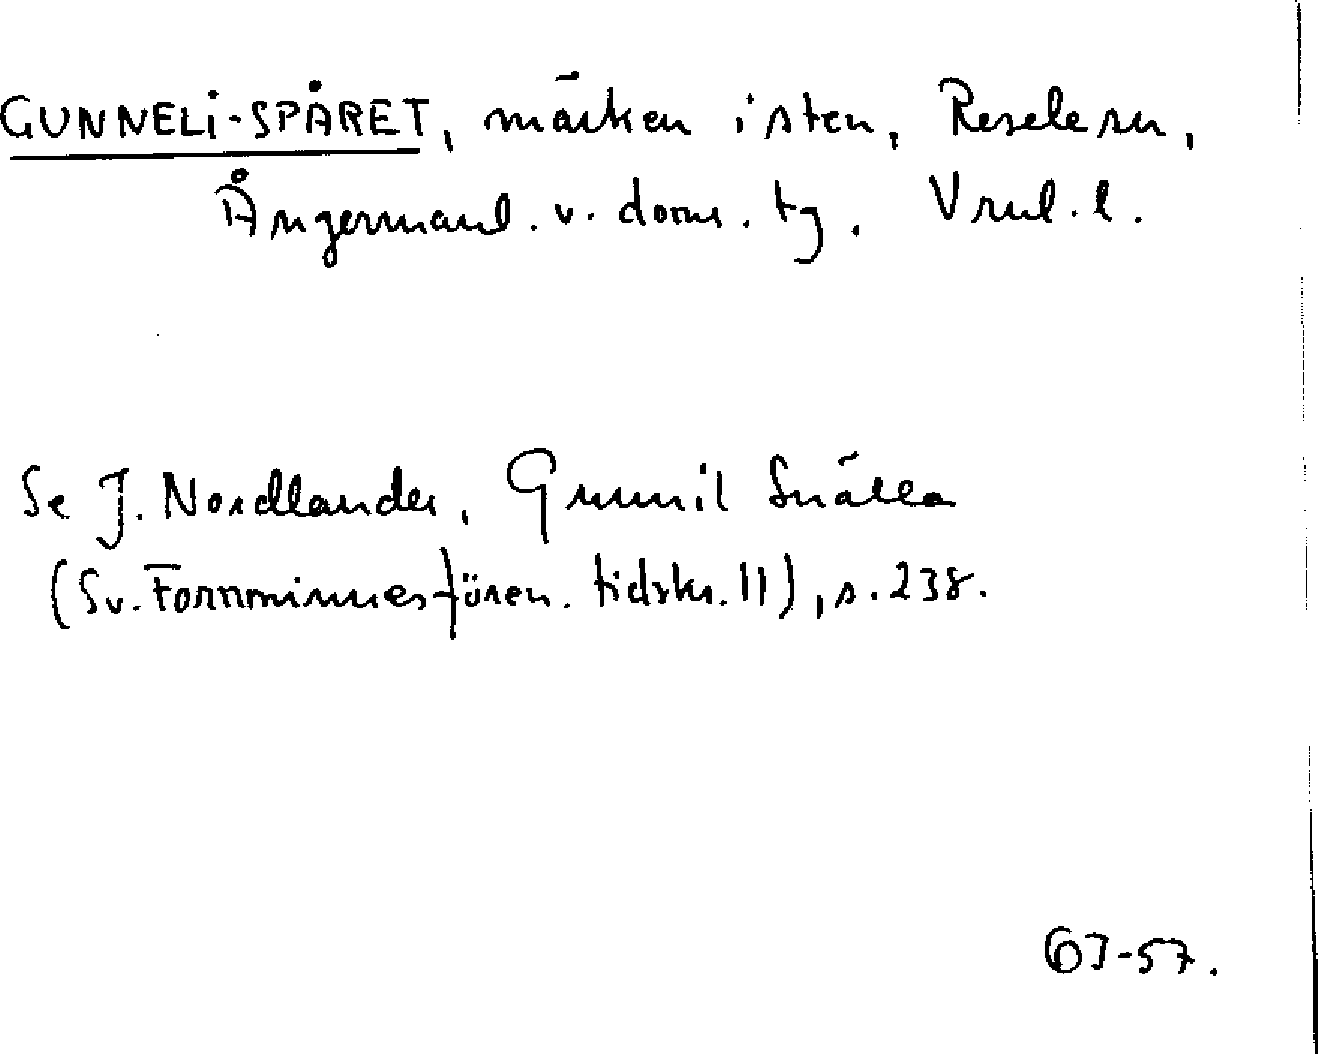 GUNNELI-SPÅRET, märken i sten, Resele sn,
Ångermanl. v. doms. tg. Vnl. l.
Se J. Nordlander, Gunnil Snälla
(Sv. Fornminnesfören. tidskr. 11), s. 238.
GJ-57.